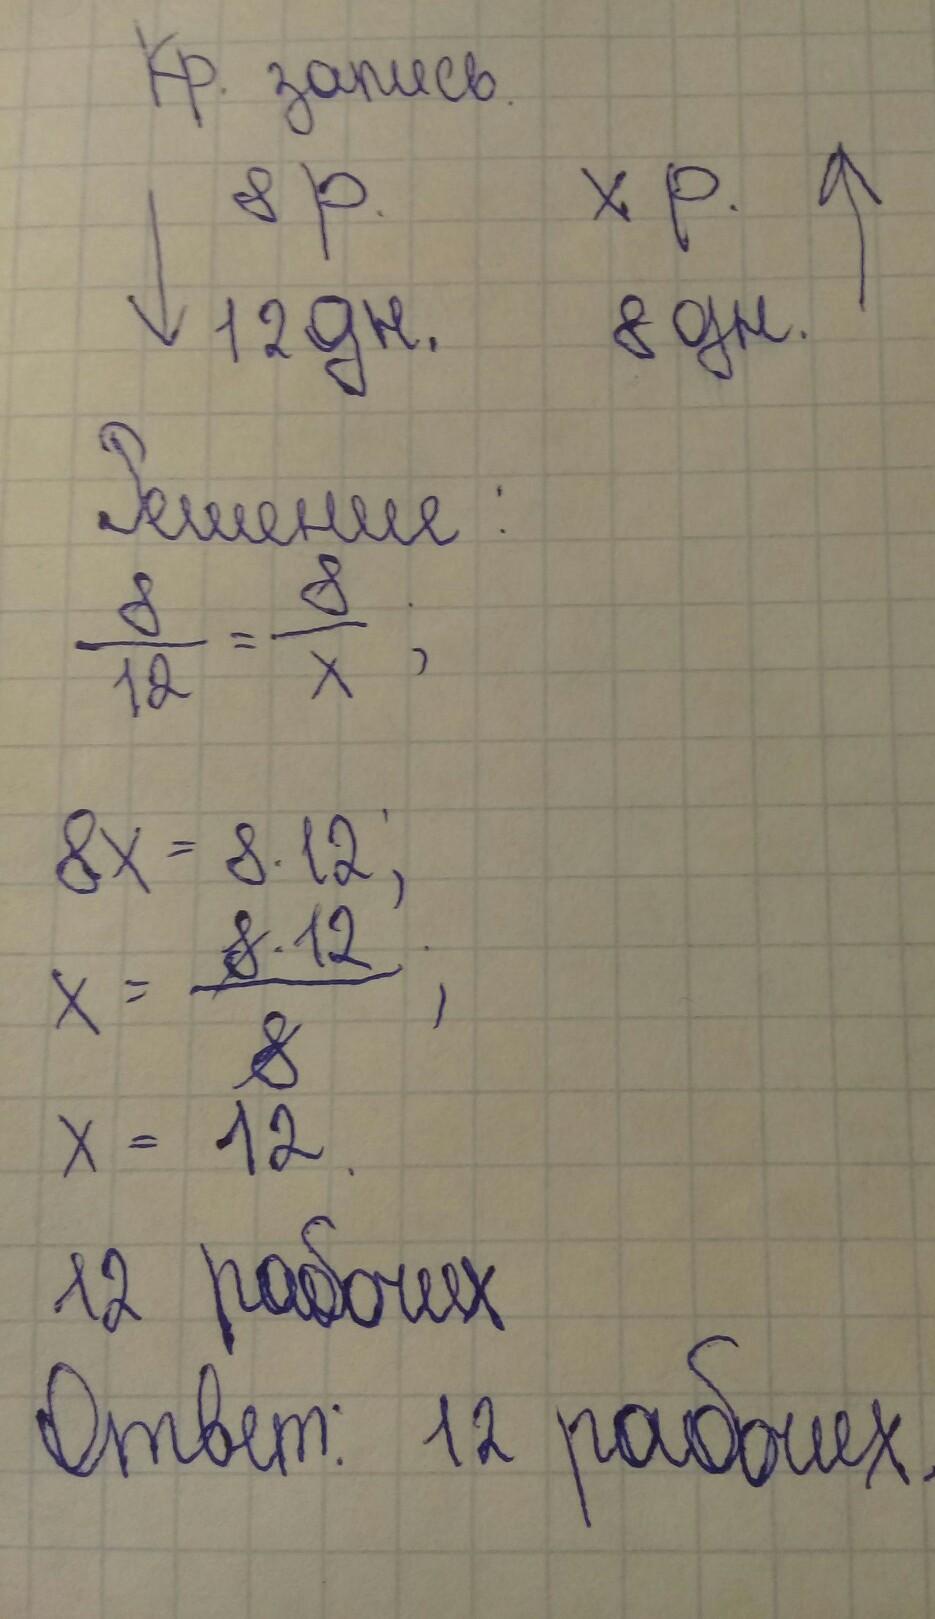 Кр. запись.
8 р. х р.
12 дн. 8 дн.
Решение:
8/12 = 8/х;
8х = 8·12;
х = 8·12/8;
х = 12.
12 рабочих
Ответ: 12 рабочих.